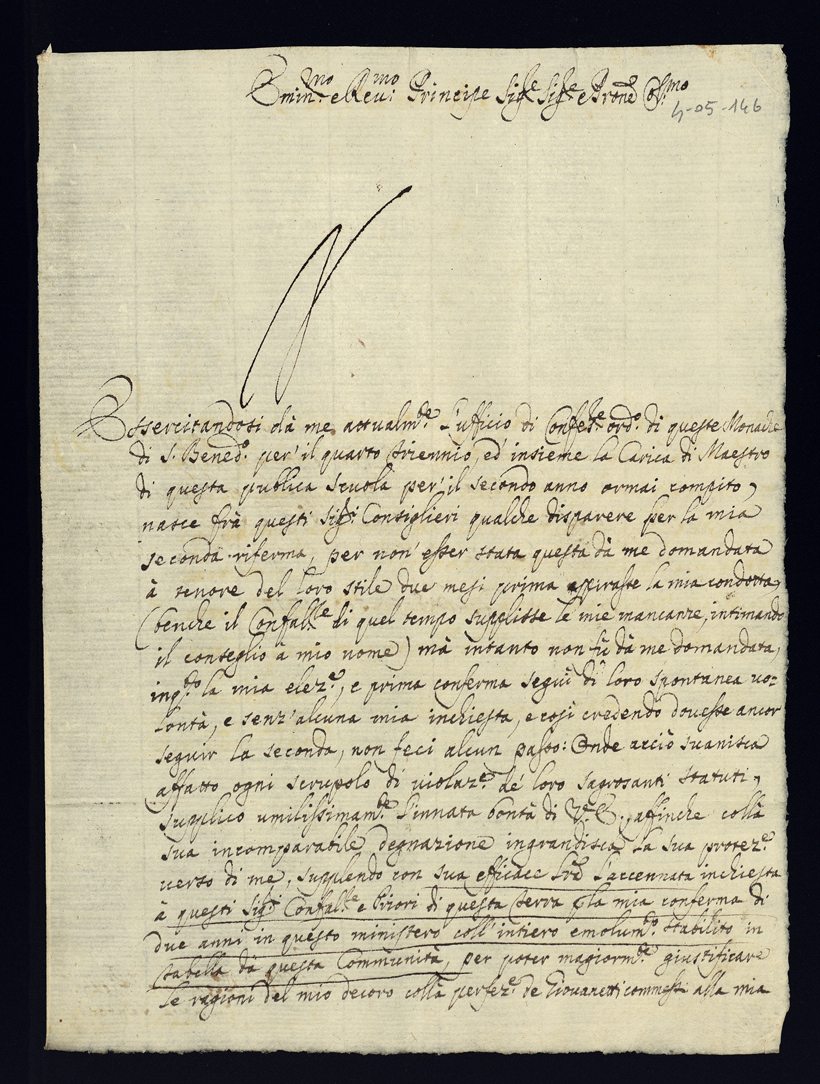 Emin.mo e Rev.mo Principe Sig.re Sig.re e Prone Oss.mo
4-05-146
Essercitandosi dà me attualm.te l'ufficio di Confess.re ord.o di queste Monache
di S. Bened.o per il quarto triennio, ed' insieme la Carica di Maestro
di questa publica scuola per il secondo anno ormai compito,
nasce frà questi Sig.ri Consiglieri qualche disparere per la mia
seconda riferma, per non' esser stata questa dà me domandata
à tenore del loro stile due mesi prima spirasse la mia condotta,
(benche il Confal.re di quel tempo supplisse le mie mancanze, intimando
il conseglio à mio nome) mà intanto non fù dà me domandata,
inq.to la mia elez.e, e prima conferma seguì di loro spontanea uo=
lontà, e senz'alcuna mia inchiesta, e così credendo douesse ancor
seguir la seconda, non feci alcun passo: Onde acciò suanisca
affatto ogni scrupolo di violaz.e de' loro sagrosanti statuti,
supplico umilissimam.te l'innata bontà di V. E., affinche collà
sua incomparabile degnazione ingrandisca la sua protez.e
verso di me, supplendo con sua efficace l'accennata inchiesta
à questi Sig.ri Confal.re e Priori di questa Serra p la mia conferma di
due anni in questo ministero coll'intiero emolum.to stabilito in
tabella dà questa Communità, per poter magiorm.te giustificare
le ragioni del mio decoro collà perfez.e de Giouanetti commessi alla mia